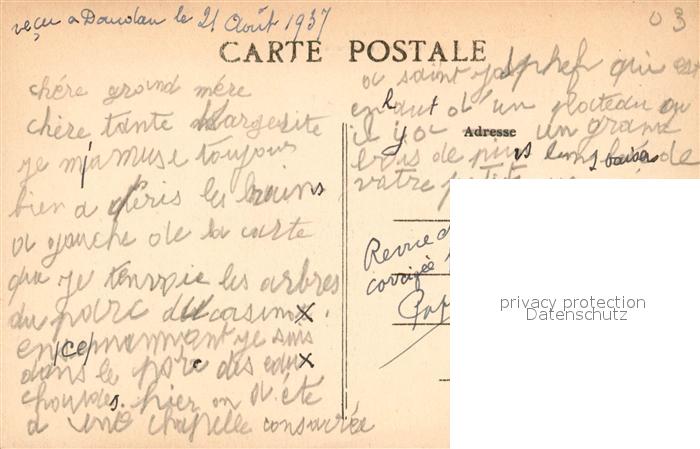 reçu a Dourdan le 21 Août 1937
03
CARTE POSTALE
chére grand mére
chère tante Margerite
je m'amuse toujours
bien a Néris les bains
a gauche de la carte
que je tenvoie les arbres
du parc du casino
en ce mommant je suis
dans le parc des eaux
chaudes. hier on a été
a une chapelle consacrée
a saint joseph qui est
en haut d'un plateau ou
il y a un grand
bois de pins bons baisers de
votre petit
Adresse
Revue
corrigée
Pap
privacy protection
Datenschutz